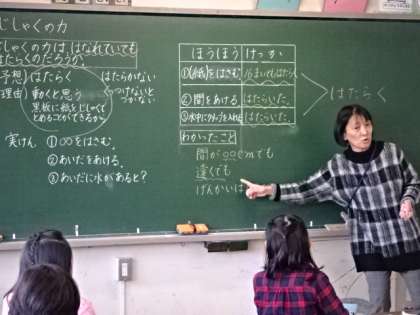 じしゃくの力
じしゃくの力は、はなれていても
はたらくのだろうか。
予想)はたらく はたらかない
理由)動くと思う つけないと
黒板に紙をじしゃくで つかない
とめることができるから
実けん ①○○をはさむ。
②あいだをあける。
③あいだに水があると?
ほうほう けっか
をはさむ。 まいでもはたらく
②間をあける はたらいた。
③水中にクリップを入れる はたらいた。
はたらく
わかったこと
間が○○cmでも
遠くても
げんかいは